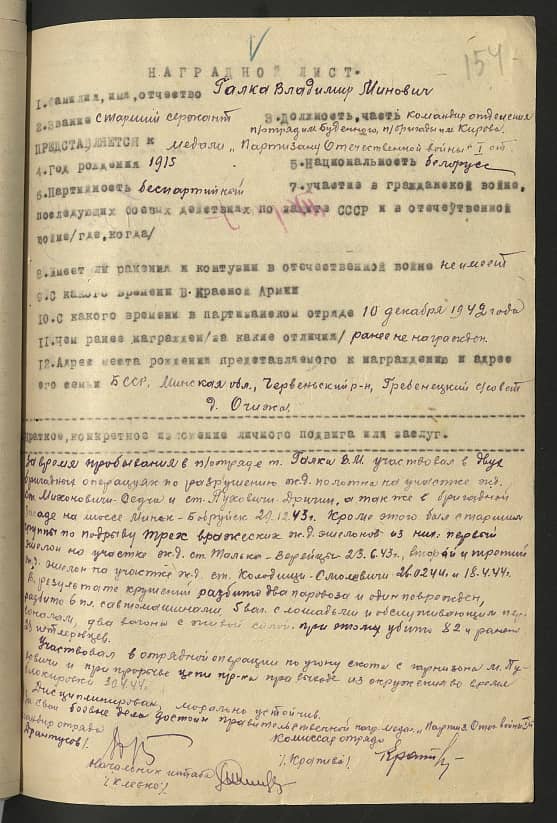 154
НАГРАДНОЙ ЛИСТ.
1.Фамилия, имя, отчество Галка Владимир Минович
2.Звание старший сержант 3.Должность, часть командир отделения
п/отряд им Буденного, п/бригады им Кирова.
ПРЕДСТАВЛЯЕТСЯ к медали "Партизану Отечественной войны" I ст.
4.Год рождения 1915 5.Национальность белорусс
6.Партийность беспартийный 7.участие в гражданской войне,
последующих боевых действиях по защите СССР и в отечественной
войне/где, когда/
8.Имеет ли ранения и контузии в отечественной войне не имеет
9.С какого времени в Красной Армии
10.С какого времени в партизанском отряде 10 декабря 1942 года
11.Чем ранее награжден/за какие отличия/ ранее не награжден.
12.Адрес места рождения представляемого к награждению и адрес
его семьи БССР, Минская обл., Червеньский р-н, Гребенецкий с/совет
д. Очижа
краткое, конкретное изложение личного подвига или заслуг.
За время пребывания в п/отряде т. Галка В.М. участвовал в двух
бригадной операциях по разрушению ж.д. полотна на участке ж.д.
ст. Михоновичи-Седча и ст. Пуховичи-Дричин, а так же в бригадной
засаде на шоссе Минск-Бобруйск 29.12.43г. Кроме этого был старшим
группы по подрыву трех вражеских ж.д. эшелонов из них: первый
эшелон на участке ж.д. ст. Талька-Верейцы 23.6.43г., второй и третий
ж.д. эшелон на участке ж.д. ст. Колодищи-Смолевичи 26.02.44г. и 18.4.44г.
В результате крушений разбито два паровоза и один поврежден,
разбито 6 пл. с автомашинами, 5 ваг. с лошадьми и обслуживающим пер-
соналом, два вагоны с живой силой. при этому убито 82 и ранен
гитлеровцев.
Участвовал в отрядной операции по угону скота с гарнизона м. Пу-
ховичи и при прорыве цепи пр-ка при выходе из окружения во время
блокировки 30.4.44г.
Дисциплинирован, морально устойчив.
За свои боевые дела достоин правительственной нагр. медал. "Партиз. Отеч. войны" I ст.
Командир отряда Комиссар отряда
начальник штаба